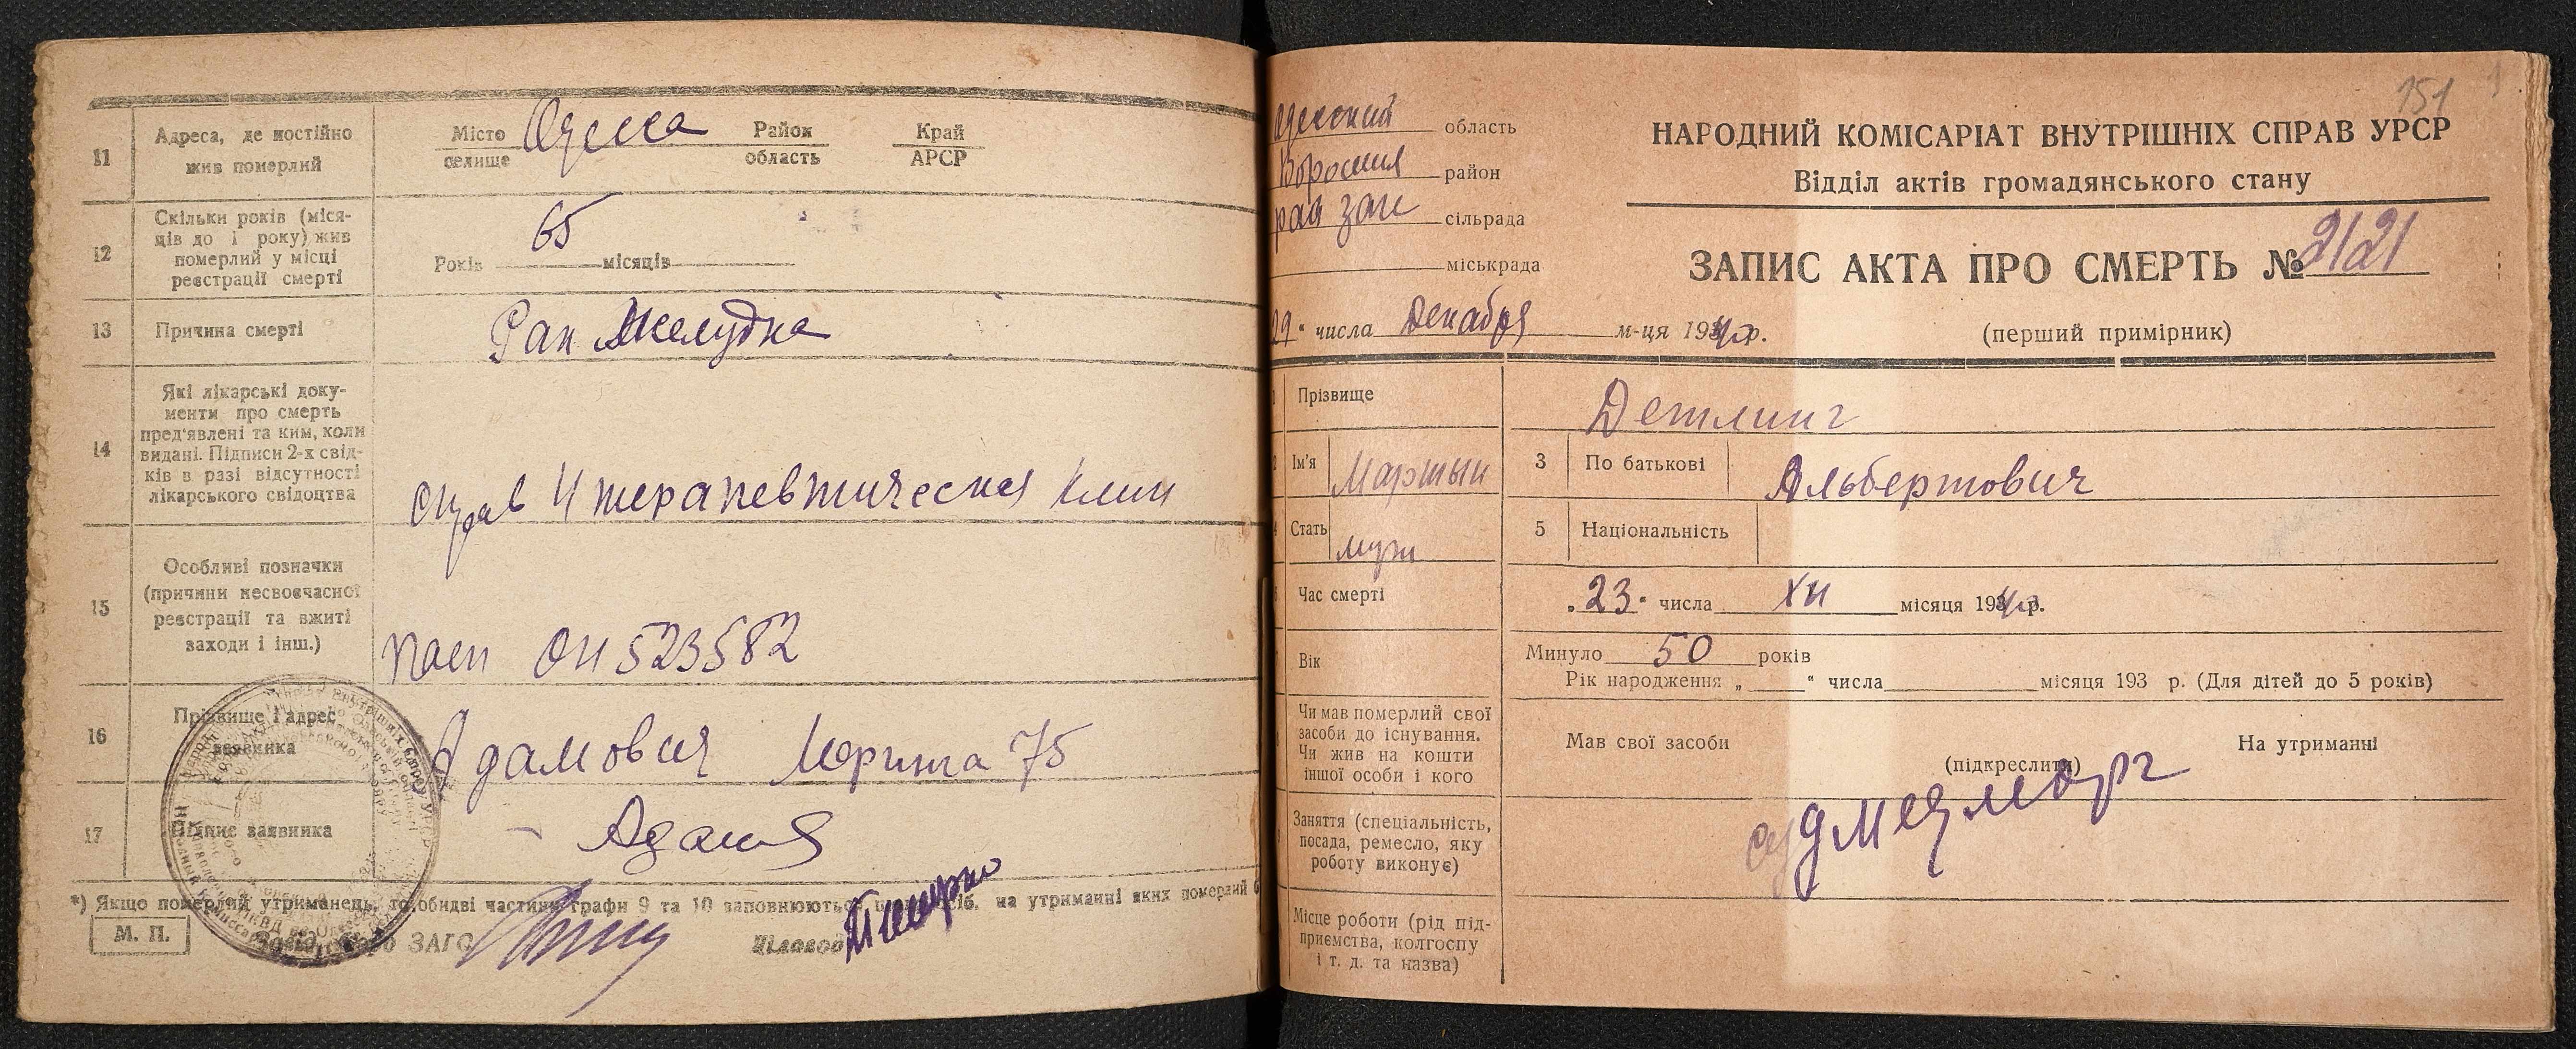 11 Адреса, де постійно жив померлий
Місто селище Одесса Район область Край АРСР
12 Скільки років (міся-
ців до 1 року) жив
померлий у місці
реєстрації смерті
Років 65 місяців
13 Причина смерті Рак Желудка
14 Які лікарські доку-
менти про смерть
пред'явлені та ким, коли
видані. Підписи 2-х свід-
ків в разі відсутності
лікарського свідоцтва
справ терапевтическая клин
15 Особливі позначки
(причини несвоєчасної
реєстрації та вжиті
заходи і інш.)
пасп 523582
16 Прізвище і адрес
заявника
Адамович 75
17 Підпис заявника
*) Якщо померлий утриманець, то обидві частини графи 9 та 10 заповнюються на утриманні яких померлий
М. П.
ЗАГС
151
Одесский область
Ворошил район
рай загс сільрада
міськрада
29 " числа Декабря м-ця 194 р.
НАРОДНИЙ КОМІСАРІАТ ВНУТРІШНІХ СПРАВ УРСР
Відділ актів громадянського стану
ЗАПИС АКТА ПРО СМЕРТЬ № 2121
(перший примірник)
Прізвище Детлинг
Ім'я Мартын 3 По батькові Альбертович
Стать муж 5 Національність
Час смерті „23" числа XII місяця 194 р.
Вік
Минуло 50 років
Рік народження „ " числа місяця 193 р. (Для дітей до 5 років)
Чи мав померлий свої
засоби до існування.
Чи жив на кошти
іншої особи і кого
Мав свої засоби (підкреслити) На утриманні
Заняття (спеціальність,
посада, ремесло, яку
роботу виконує)
судмедморг
Місце роботи (рід під-
приємства, колгоспу
і т. д. та назва)